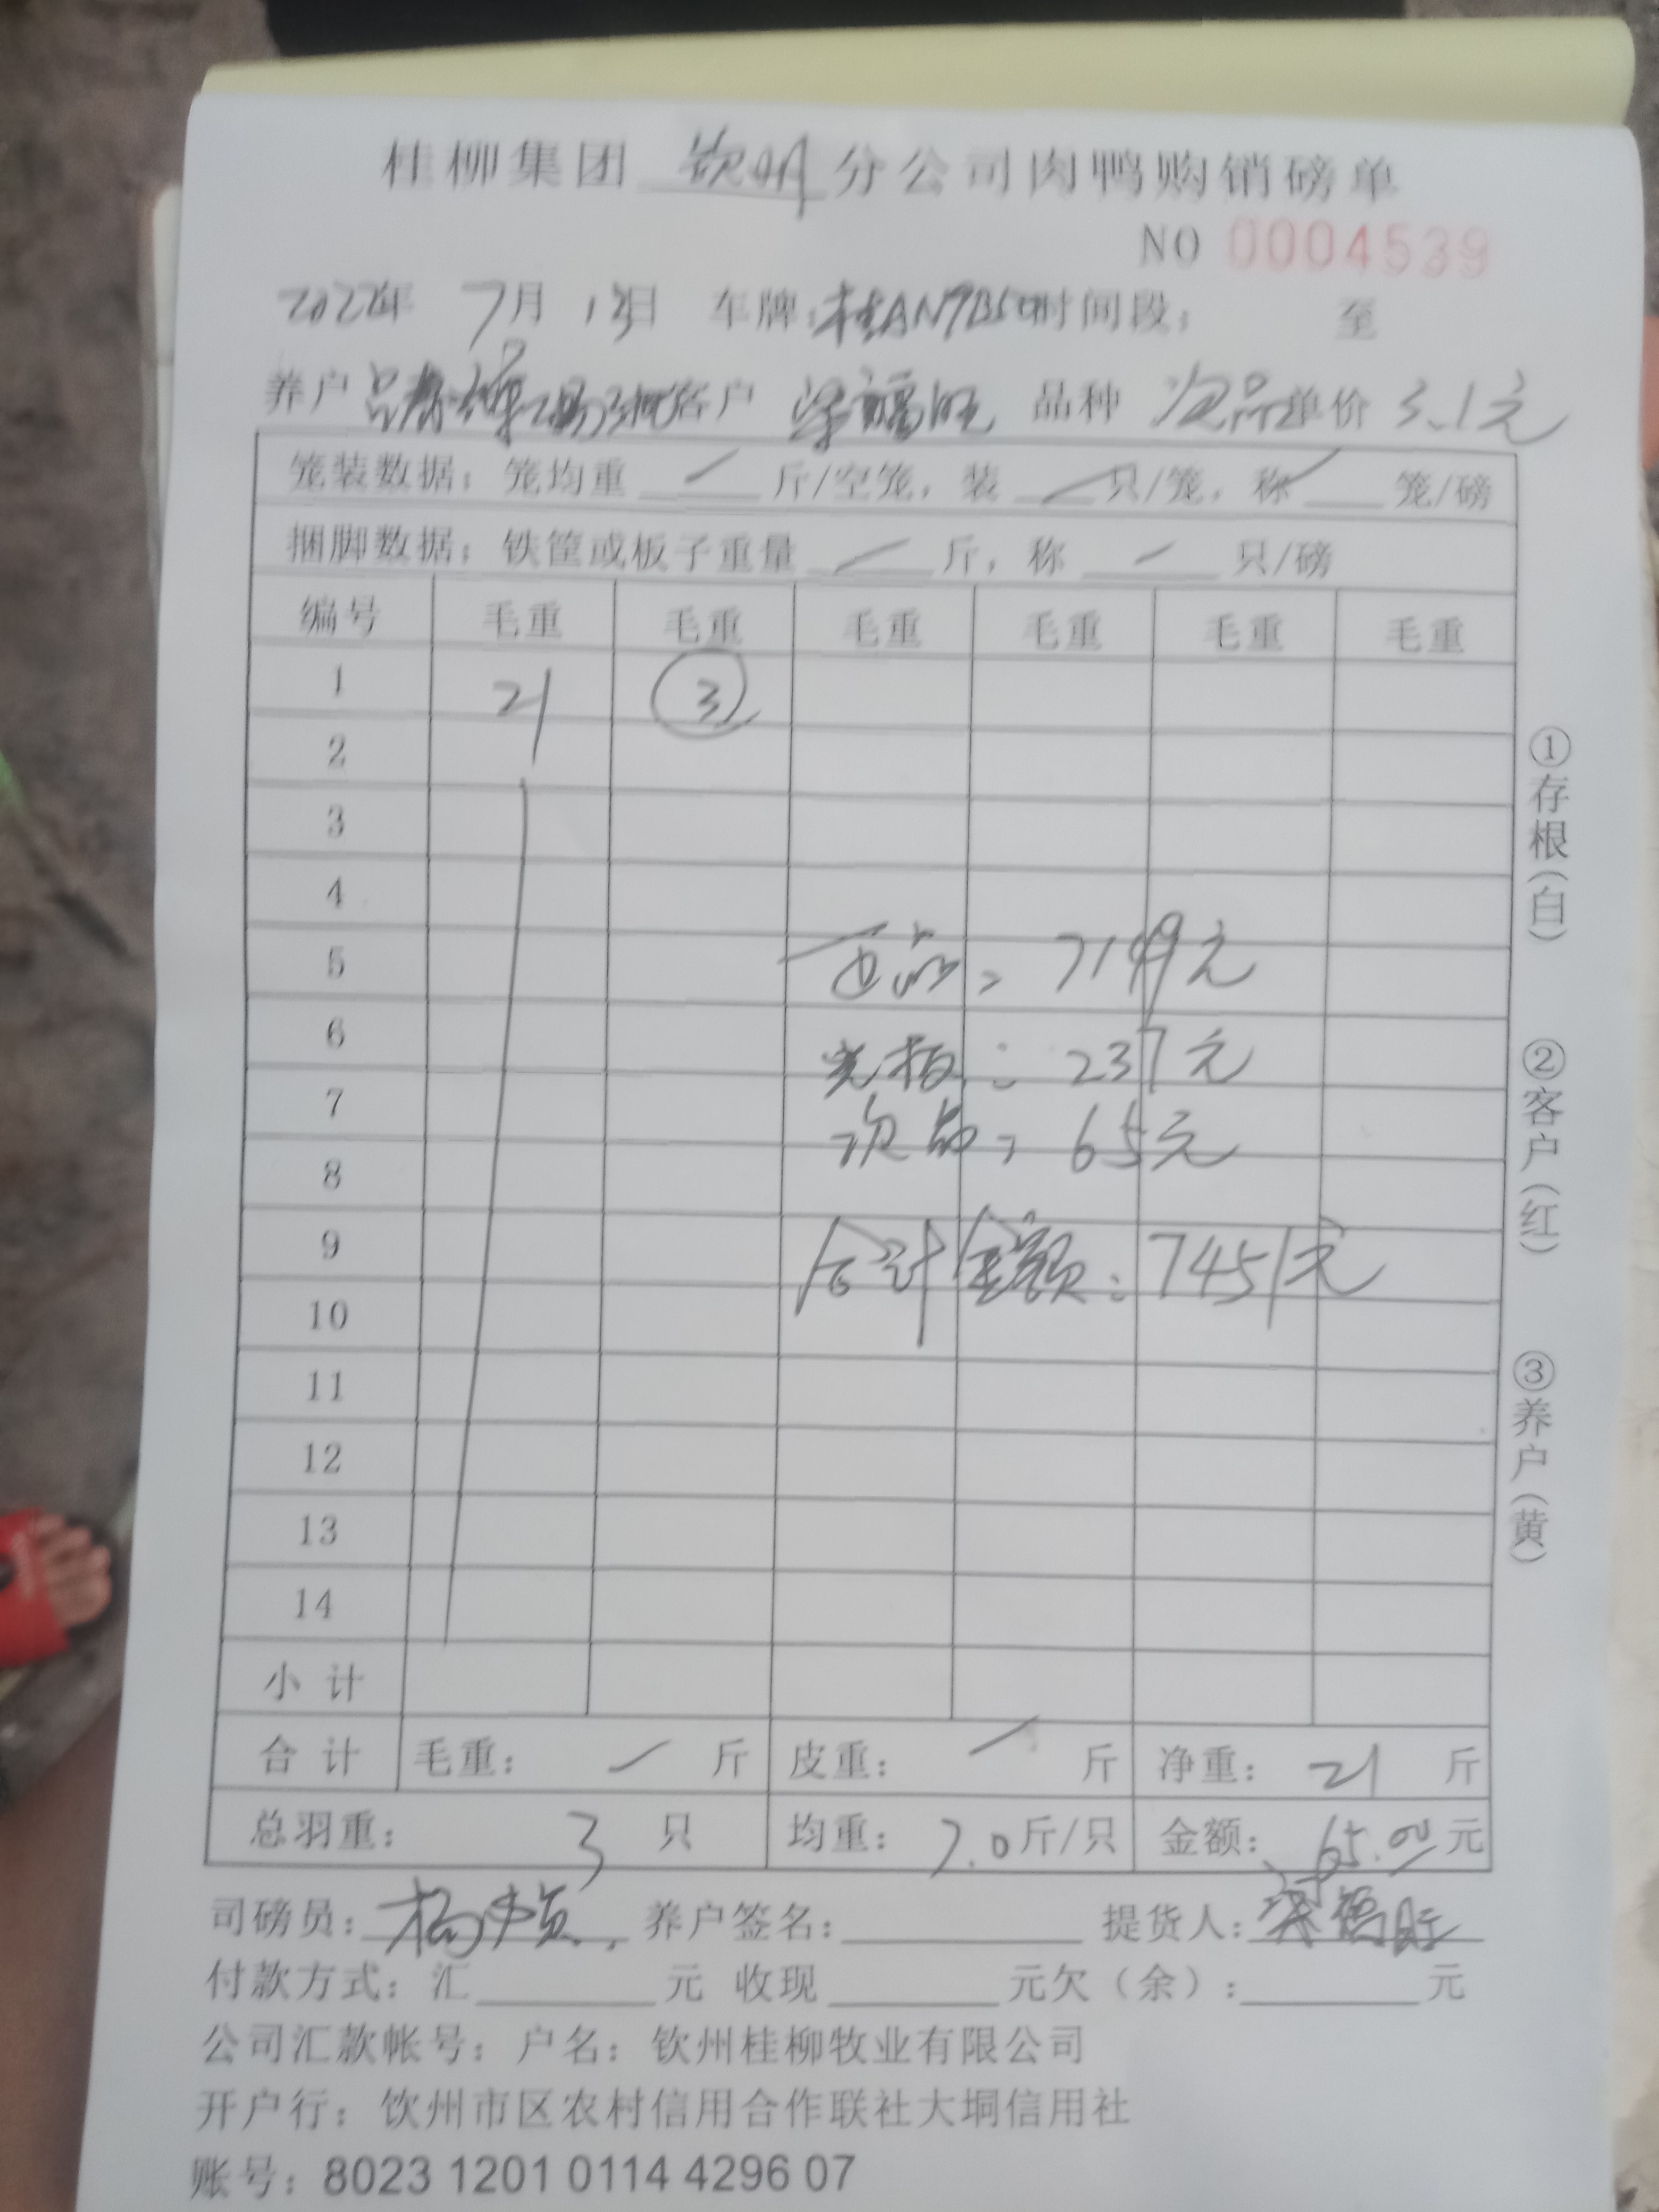 桂柳集团 钦州 分公司肉鸭购销磅单
NO 0004539
2022年 7月 日 车牌: 时间段: 至
养户 客户 梁福旺 品种 次品 单价 3.1元
笼装数据: 笼均重 / 斤/空笼, 装 / 只/笼, 称 / 笼/磅
捆脚数据: 铁筐或板子重量 / 斤, 称 / 只/磅
编号 毛重 毛重 毛重 毛重 毛重 毛重
1 21 ③
2
3
4
5 正品: 7149元
6 光板: 237元
7
8 次品: 65元
9 合计金额: 7451元
10
11
12
13
14
小 计
合 计 毛重: / 斤 皮重: / 斤 净重: 21 斤
总羽重: 3 只 均重: 7.0斤/只 金额: 65.00元
司磅员: 杨 养户签名: 提货人: 梁福旺
付款方式: 汇 元 收现 元欠(余): 元
公司汇款帐号: 户名: 钦州桂柳牧业有限公司
开户行: 钦州市区农村信用合作联社大垌信用社
账号: 8023 1201 0114 4296 07
①存根(白)
②客户(红)
③养户(黄)